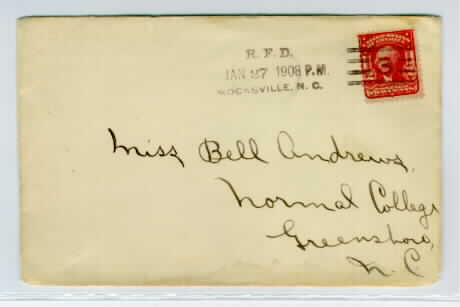 R. F. D.
JAN 27 1908 P.M.
MOCKSVILLE, N. C.
Miss Bell Andrews,
Normal College
Greensboro,
N. C